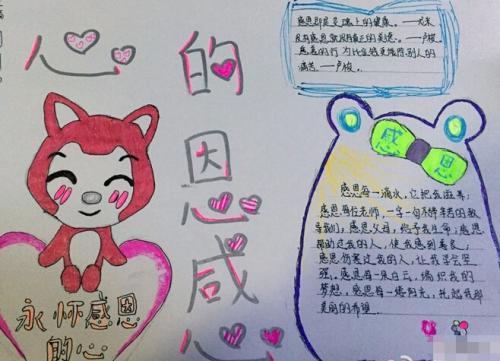 心
的
恩
感
永怀感恩
的心
感恩即是灵魂上的健康。——尼采
没有感恩就没有真正的美德。——卢梭
的行为比
痛苦——卢梭
感恩
感恩每一滴水,它把我滋养;
感恩每位老师,一字一句不辞辛苦的教
导我们,感恩父母,给予我生命;感恩
帮助过我的人,使我感到善良;
感恩伤害过我的人,让我学会坚
强。感恩每一朵白云,编织我的
梦想,感恩每一缕阳光,托起我那
美丽的希望